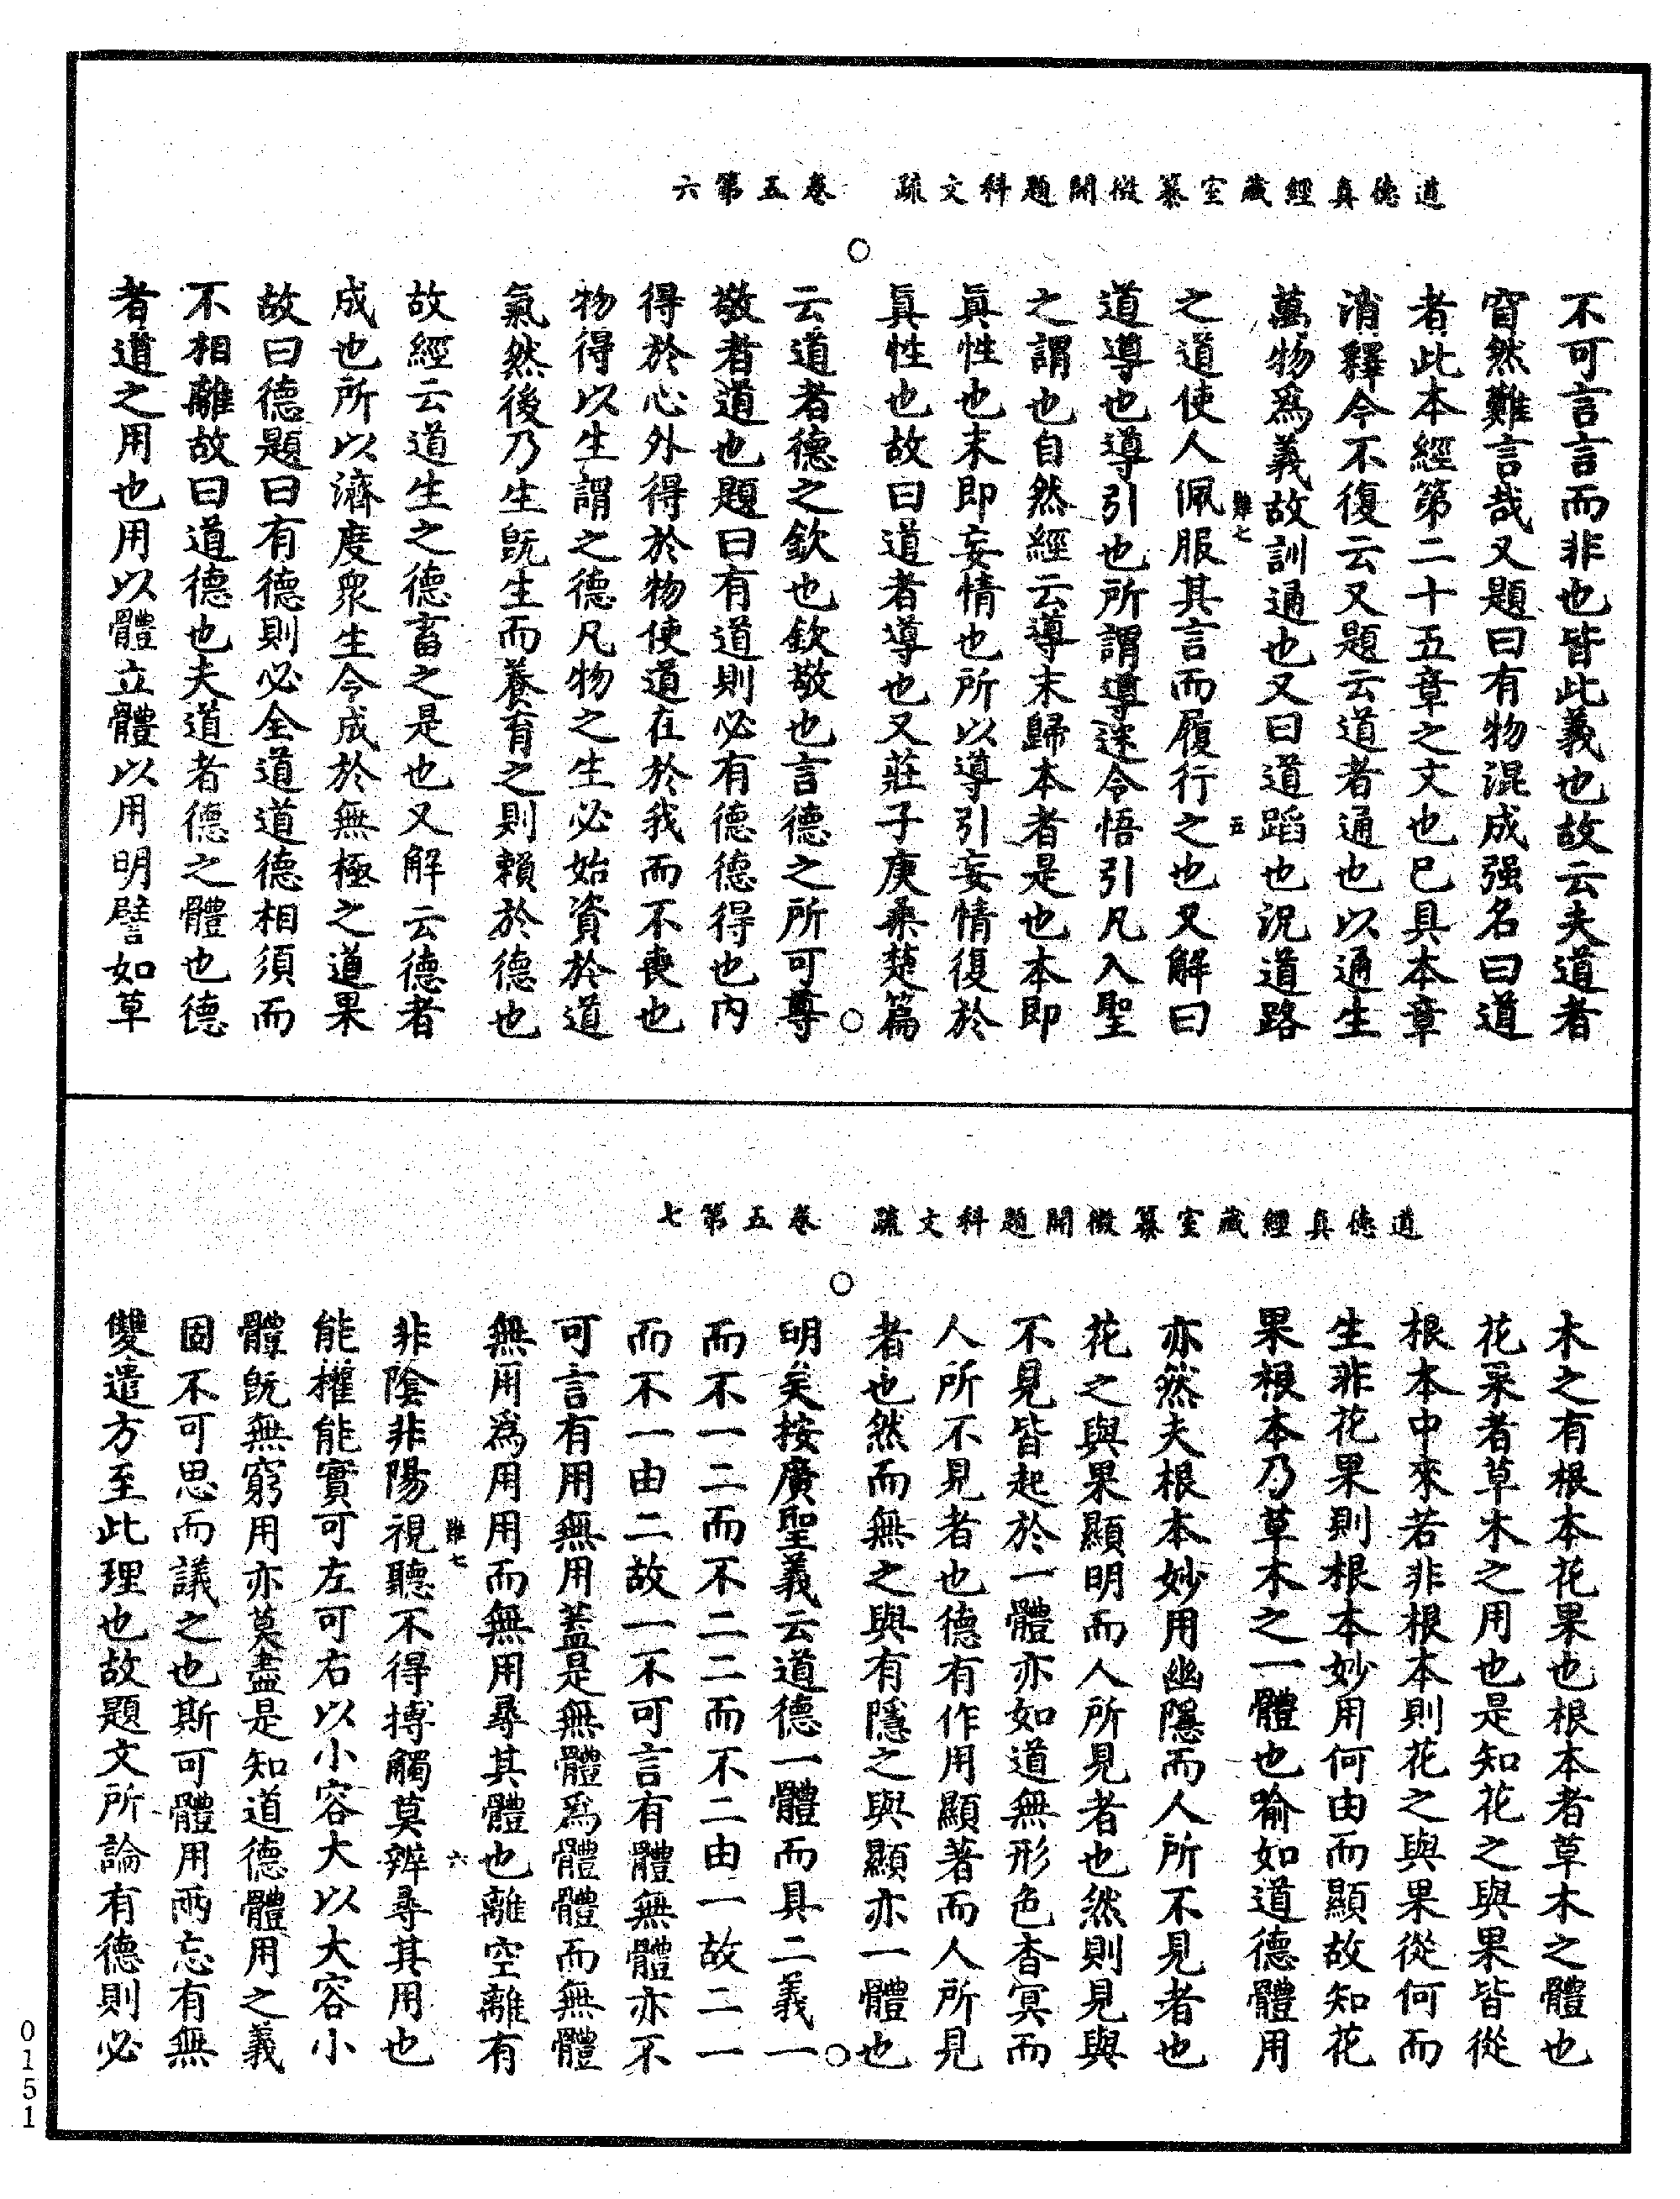 道德真經藏室纂微開題科文疏　卷五第六
不可言言而非也皆此義也故云夫道者
窅然難言哉又題曰有物混成强名曰道
者此本經第二十五章之文也已具本章
消釋今不復云又題云道者通也以通生
萬物爲義故訓通也又曰道蹈也況道路
難七　五
之道使人佩服其言而履行之也又解曰
道導也導引也所謂導迷令悟引凡入聖
之謂也自然經云導末歸本者是也本即
真性也末即妄情也所以導引妄情復於
真性也故曰道者導也又莊子庚桑楚篇
云道者德之欽也欽敬也言德之所可尊
敬者道也題曰有道則必有德德得也內
得於心外得於物使道在於我而不喪也
物得以生謂之德凡物之生必始資於道
氣然後乃生既生而養育之則賴於德也
故經云道生之德畜之是也又解云德者
成也所以濟度衆生令成於無極之道果
故曰德題曰有德則必全道道德相須而
不相離故曰道德也夫道者德之體也德
者道之用也用以體立體以用明譬如草
道德真經藏室纂微開題科文疏　卷五第七
木之有根本花果也根本者草木之體也
花菓者草木之用也是知花之與果皆從
根本中來若非根本則花之與果從何而
生非花果則根本妙用何由而顯故知花
果根本乃草木之一體也喻如道德體用
亦然夫根本妙用幽隱而人所不見者也
花之與果顯明而人所見者也然則見與
不見皆起於一體亦如道無形色杳冥而
人所不見者也德有作用顯著而人所見
者也然而無之與有隱之與顯亦一體也
明矣按廣聖義云道德一體而具二義一
而不一二而不二二而不二由一故二一
而不一由二故一不可言有體無體亦不
可言有用無用蓋是無體爲體體而無體
無用爲用用而無用尋其體也離空離有
難七　六
非陰非陽視聽不得搏觸莫辨尋其用也
能權能實可左可右以小容大以大容小
體既無窮用亦莫盡是知道德體用之義
固不可思而議之也斯可體用兩忘有無
雙遣方至此理也故題文所論有德則必
0151